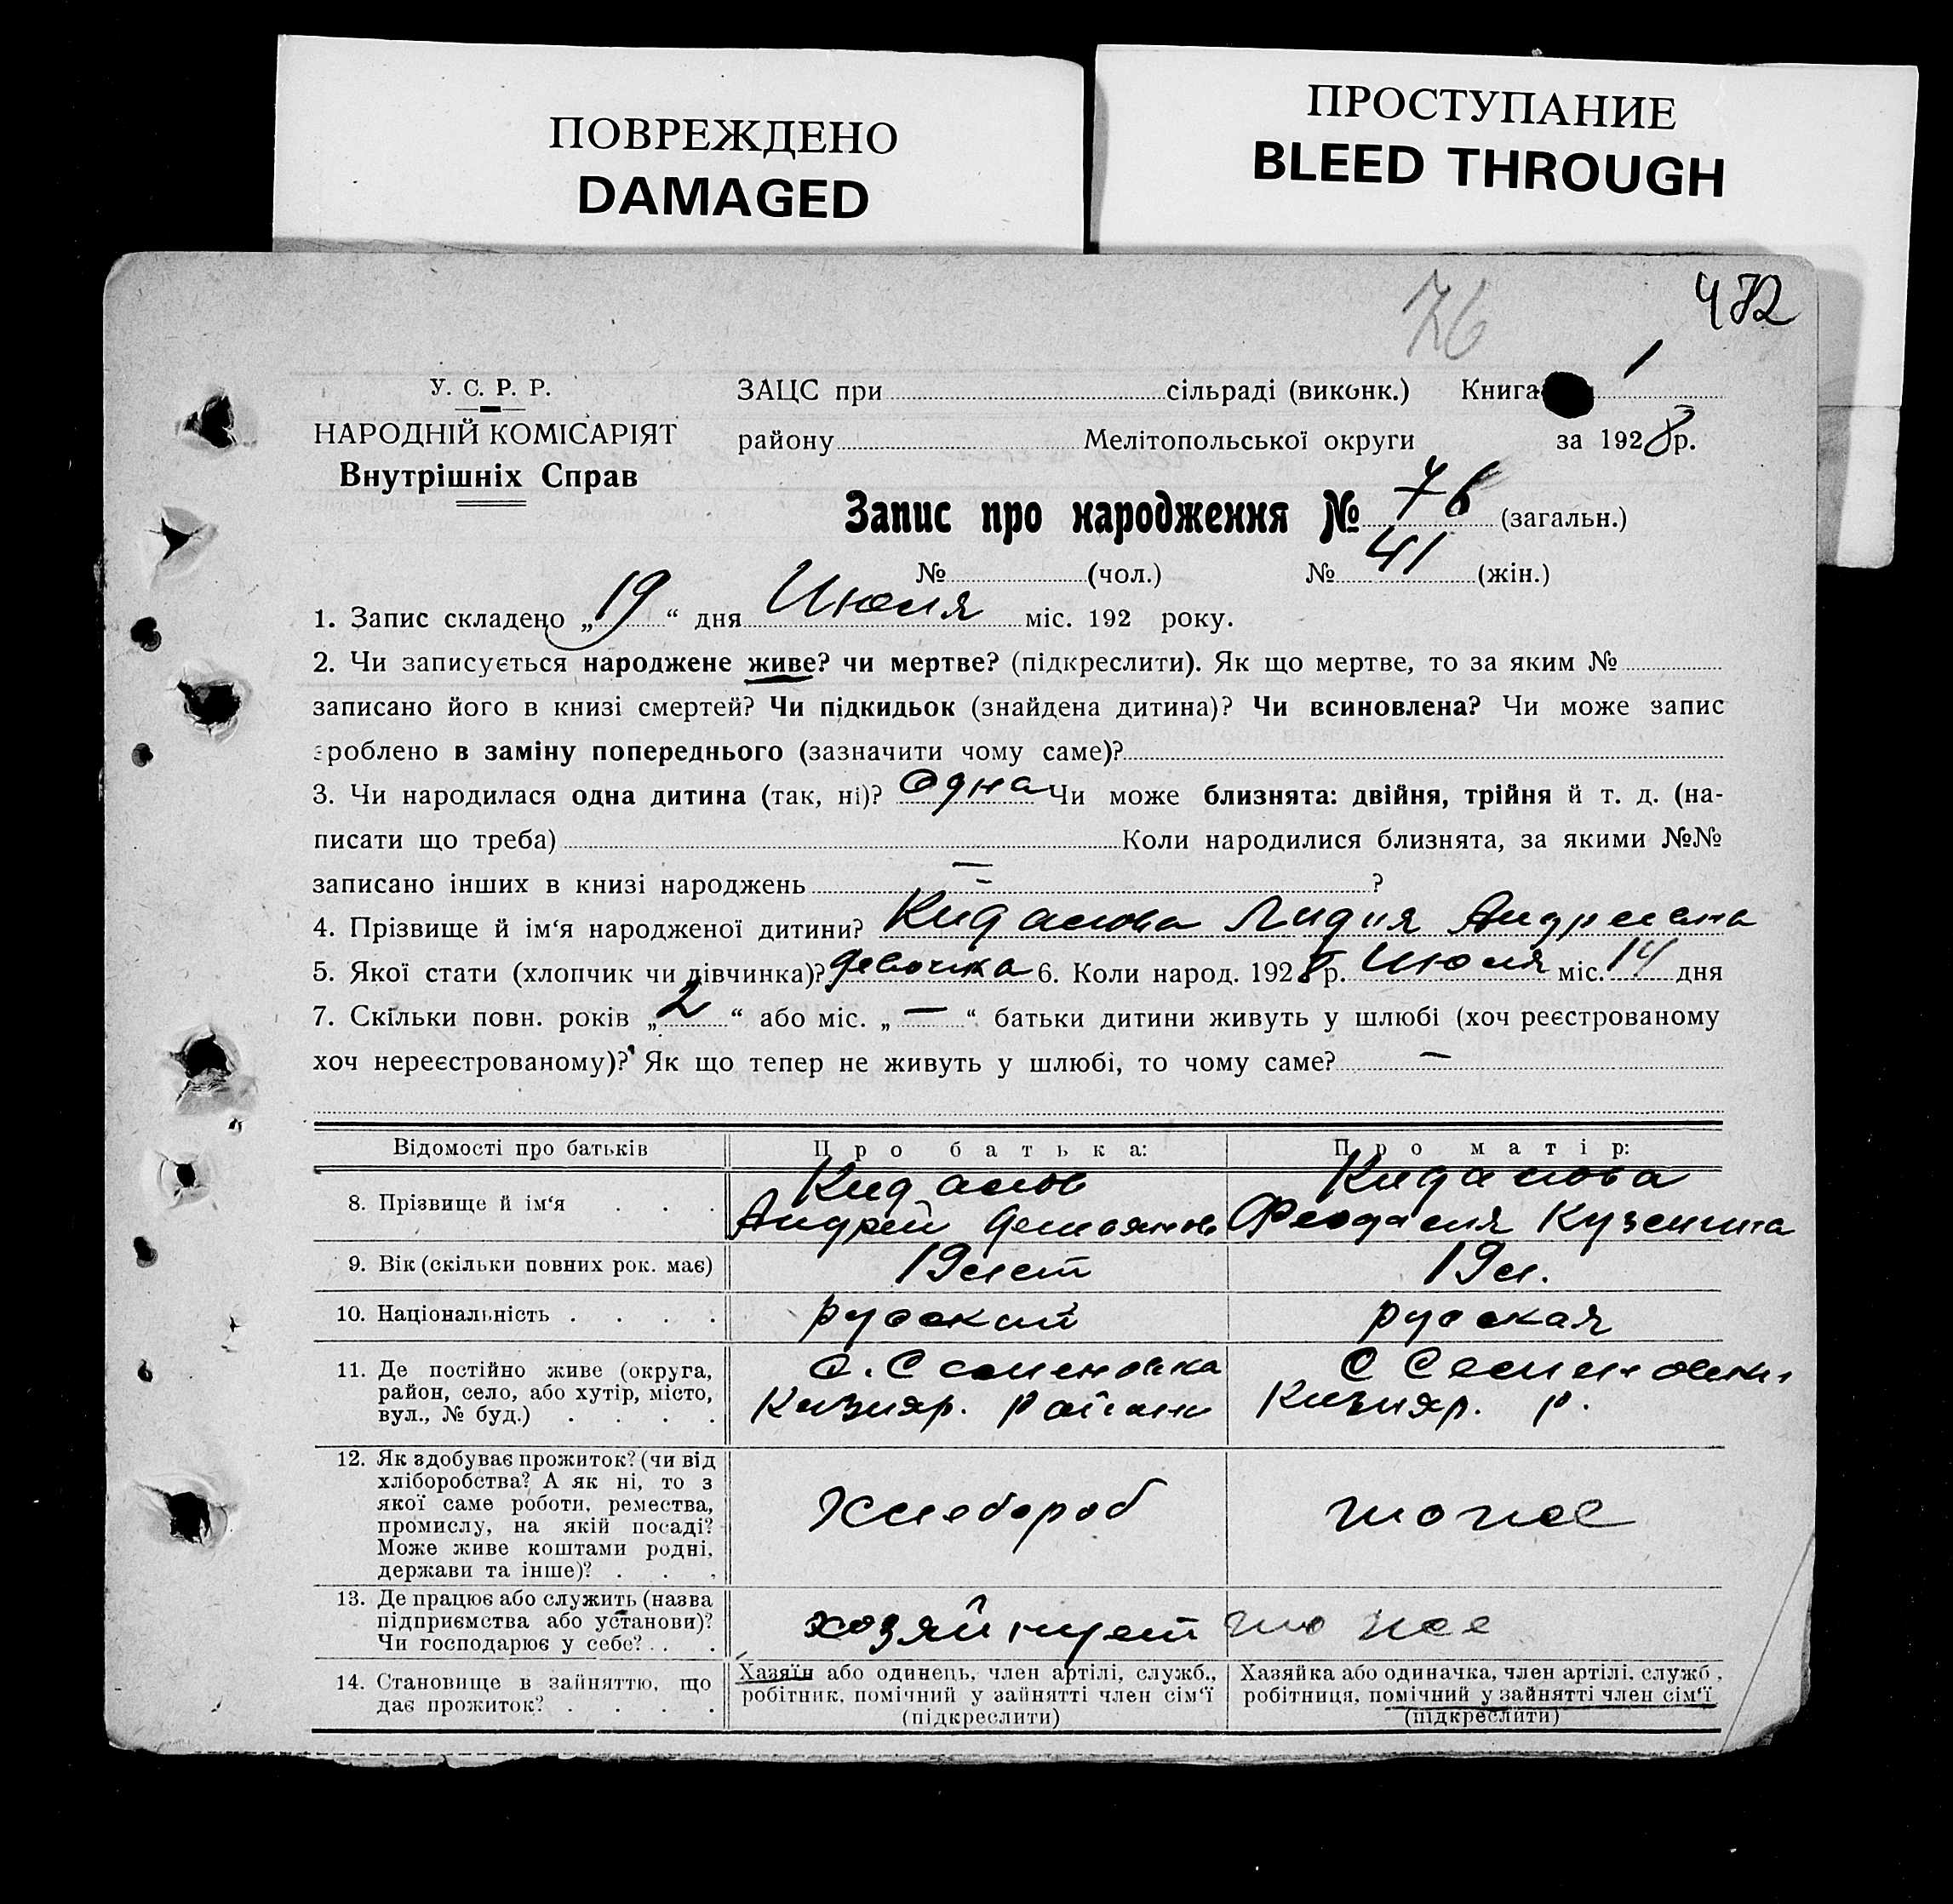 ПОВРЕЖДЕНО
DAMAGED
ПРОСТУПАНИЕ
BLEED THROUGH
472
76
У. С. Р. Р.
НАРОДНІЙ КОМІСАРІЯТ
Внутрішніх Справ
ЗАЦС при сільраді (виконк.) Книга 1
району Мелітопольської округи за 1928 р.
Запис про народження № 76 (загальн.)
№ (чол.) № 41 (жін.)
1. Запис складено „19“ дня Июля міс. 192 року.
2. Чи записується народжене живе? чи мертве? (підкреслити). Як що мертве, то за яким №
записано його в книзі смертей? Чи підкидьок (знайдена дитина)? Чи всиновлена? Чи може запис
зроблено в заміну попереднього (зазначити чому саме)?
3. Чи народилася одна дитина (так, ні)? Одна Чи може близнята: двійня, трійня й т. д. (на-
писати що треба) Коли народилися близнята, за якими №№
записано інших в книзі народжень — ?
4. Прізвище й ім‘я народженої дитини? Кидалова Лидия Андреевна
5. Якої стати (хлопчик чи дівчинка)? девочка 6. Коли народ. 1928 р. Июля міс. 14 дня
7. Скільки повн. років „2“ або міс. „—“ батьки дитини живуть у шлюбі (хоч реєстрованому
хоч нереєстрованому)? Як що тепер не живуть у шлюбі, то чому саме? —
Відомості про батьків Про батька: Про матір:
8. Прізвище й ім‘я . . . Кидалов Кидалова
Андрей Кузьминична
9. Вік (скільки повних рок. має) 19 лет 19 л.
10. Національність . . . . русский русская
11. Де постійно живе (округа,
район, село, або хутір, місто,
вул., № буд.) . . . .
с. Семеновка С Семеновки
Кизияр. района Кизияр. р.
12. Як здобуває прожиток? (чи від
хліборобства? А як ні, то з
якої саме роботи, ремества,
промислу, на якій посаді?
Може живе коштами родні,
держави та інше)? . . .
Хлебороб тоже
13. Де працює або служить (назва
підприємства або установи)?
Чи господарює у себе? . . .
хозяйнует то же
14. Становище в зайняттю, що
дає прожиток? . . . .
Хазяїн або одинець, член артілі, служб.,
робітник, помічний у зайнятті член сім‘ї
(підкреслити)
Хазяйка або одиначка, член артілі, служб.,
робітниця, помічний у зайнятті член сім‘ї
(підкреслити)